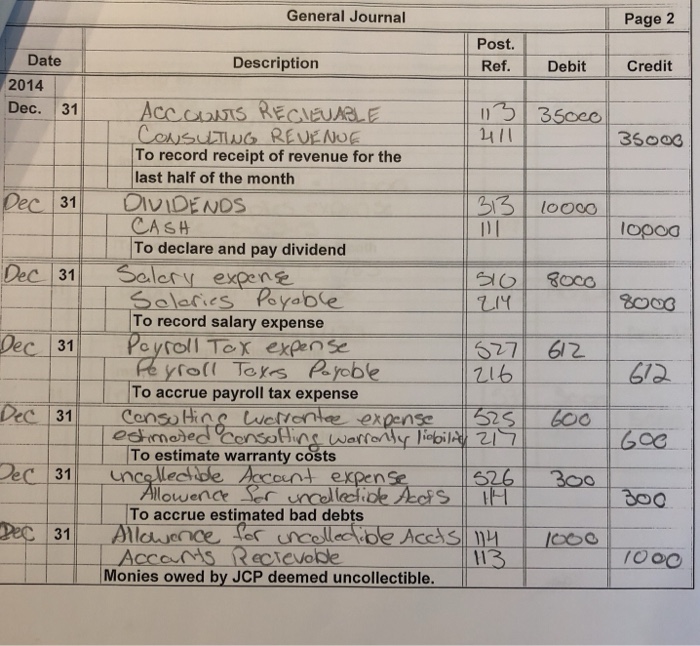 General Journal Page 2
Post.
Date Description Ref. Debit Credit
2014
Dec. 31 ACCOUNTS RECIEVABLE 113 35000
CONSULTING REVENUE 411 35000
To record receipt of revenue for the
last half of the month
Dec 31 DIVIDENDS 313 10000
CASH 111 10000
To declare and pay dividend
Dec 31 Salary expense 510 8000
Salaries Payable 214 8000
To record salary expense
Dec 31 Payroll Tax expense 527 612
Payroll Taxes Payable 216 612
To accrue payroll tax expense
Dec 31 Consulting Warrantee expense 525 600
estimated Consulting warranty liability 217 600
To estimate warranty costs
Dec 31 uncollectible Account expense 526 300
Allowence for uncollectible Accts 114 300
To accrue estimated bad debts
Dec 31 Allowence for uncollectible Accts 114 1000
Accounts Recievable 113 1000
Monies owed by JCP deemed uncollectible.